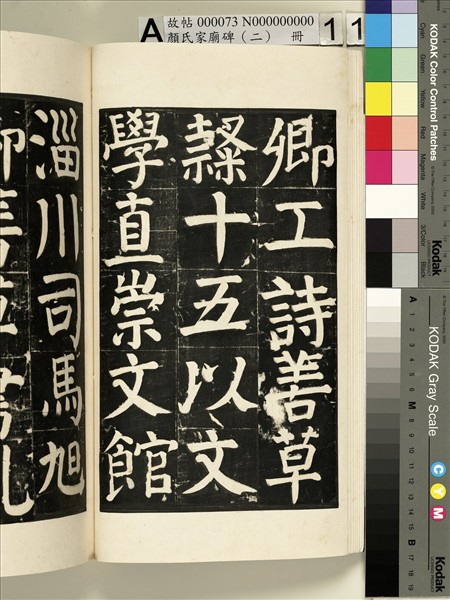 A 故帖 000073 N000000000
顏氏家廟碑（二） 冊
11
卿工詩善草
隸十五以文
學直崇文館
淄川司馬旭
卿善草書
KODAK Color Control Patches
Cyan
Green
Yellow
Red
Magenta
White
3/Color
Black
Kodak
LICENSED PRODUCT
KODAK Gray Scale
C Y M
Kodak
LICENSED PRODUCT
A 1 2 3 4 5 6 M 8 9 10 11 12 13 14 15 B 17 18 19